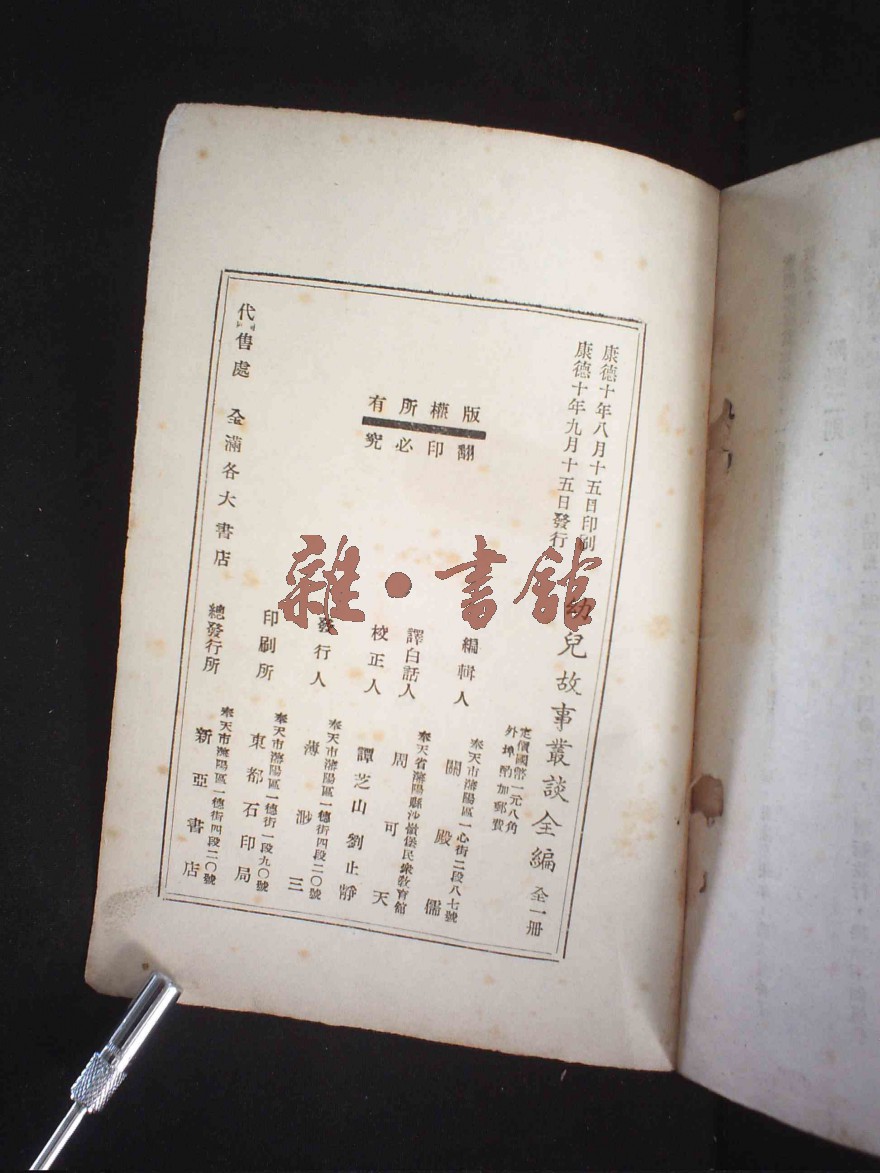 康德十年八月十五日印刷
康德十年九月十五日發行
版權所有
翻印必究
幼兒故事叢談全編 全一冊
定價國幣一元八角
外埠酌加郵費
編輯人
奉天市瀋陽區一心街二段八七號
關殿儒
譯白話人
奉天省瀋陽縣沙嶺堡民衆教育館
周可天
校正人
譚芝山 劉止靜
發行人
奉天市瀋陽區一德街四段二〇號
薄渺三
印刷所
奉天市瀋陽區一德街一段九〇號
東都石印局
總發行所
奉天市瀋陽區一德街四段二〇號
新亞書店
代售處 全滿各大書店
雜·書館